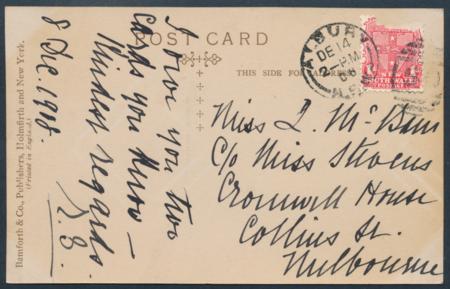 POST CARD
THIS SIDE FOR
I owe you two
cards you know –
Kindest regards
8 Dec. 1908.
Bamforth & Co., Publishers, Holmfirth and New York.
(Printed in England).
ALBURY
DE 14
2 - PM
08
N.S.
NEW
SOUTH WALES
Miss L. Mc
C/o Miss Stevens
Cromwell House
Collins St.
Melbourne